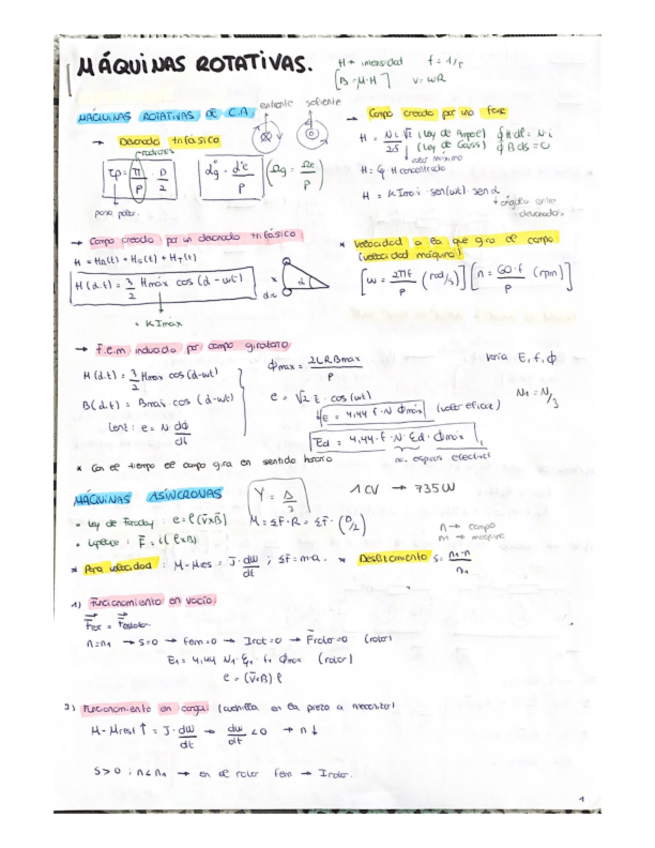 MÁQUINAS ROTATIVAS.
H → intensidad f = 1/T
[B = μ·H] v = ωR
MÁQUINAS ROTATIVAS DE C.A
entrante saliente
→ Devanado trifásico
τp = π/p · D/2
αg = αe/p (Ωg = Ωe/p)
paso polar.
→ Campo creado por una fase
(Ley de Ampere) ∮ H dl = N·i
(Ley de Gauss) ∮ B ds = 0
valor máximo
H = k Imax · sen(wt) · sen α
ángulo entre devanados.
→ Campo creado por un devanado trifásico
H = HR(t) + HS(t) + HT(t)
H(α.t) = 3/2 Hmáx cos(α - wt)
= K Imáx
* Velocidad a la que gira el campo
(velocidad máquina)
[ω = 2πf/p (rad/s)] [n = 60·f/p (rpm)]
→ F.e.m inducida por campo giratorio
H(α.t) = 3/2 Hmax cos(α-wt)
B(α.t) = Bmax · cos(α-wt)
Lenz: e = N · dΦ/dt
Φmax = 2LRBmax/p
e = √2 E · cos(wt)
E = 4,44 f · N Φmáx (valor eficaz)
Ed = 4,44 · f · N · ξd · Φmáx
varía E, f, Φ
N1 = N/3
* Con el tiempo el campo gira en sentido horario
MÁQUINAS ASÍNCRONAS
Y = Δ/3
1 CV → 735W
• Ley de Faraday: e = l(v̄xB̄)
• Laplace: F̄ = i(l̄xB̄)
M = ΣF·R = ΣF·(D/2)
n → campo
m → máquina
* Para velocidad: M - Mres = J · dω/dt ; ΣF = m·a.
* Deslizamiento s = n1-n/n1
1) Funcionamiento en vacío.
n=n1 → s=0 → fem=0 → Irot=0 → F̄rotor=0 (rotor)
E1 = 4,44 N1·ξ1·f1 Φmáx
e = (v̄xB̄) l
2) Funcionamiento en carga (cuchilla en la pieza a mecanizar)
M - Mrest↑ = J · dω/dt → dω/dt < 0 → n↓
s>0 ; n<n1 → en el rotor fem → Irotor.
1